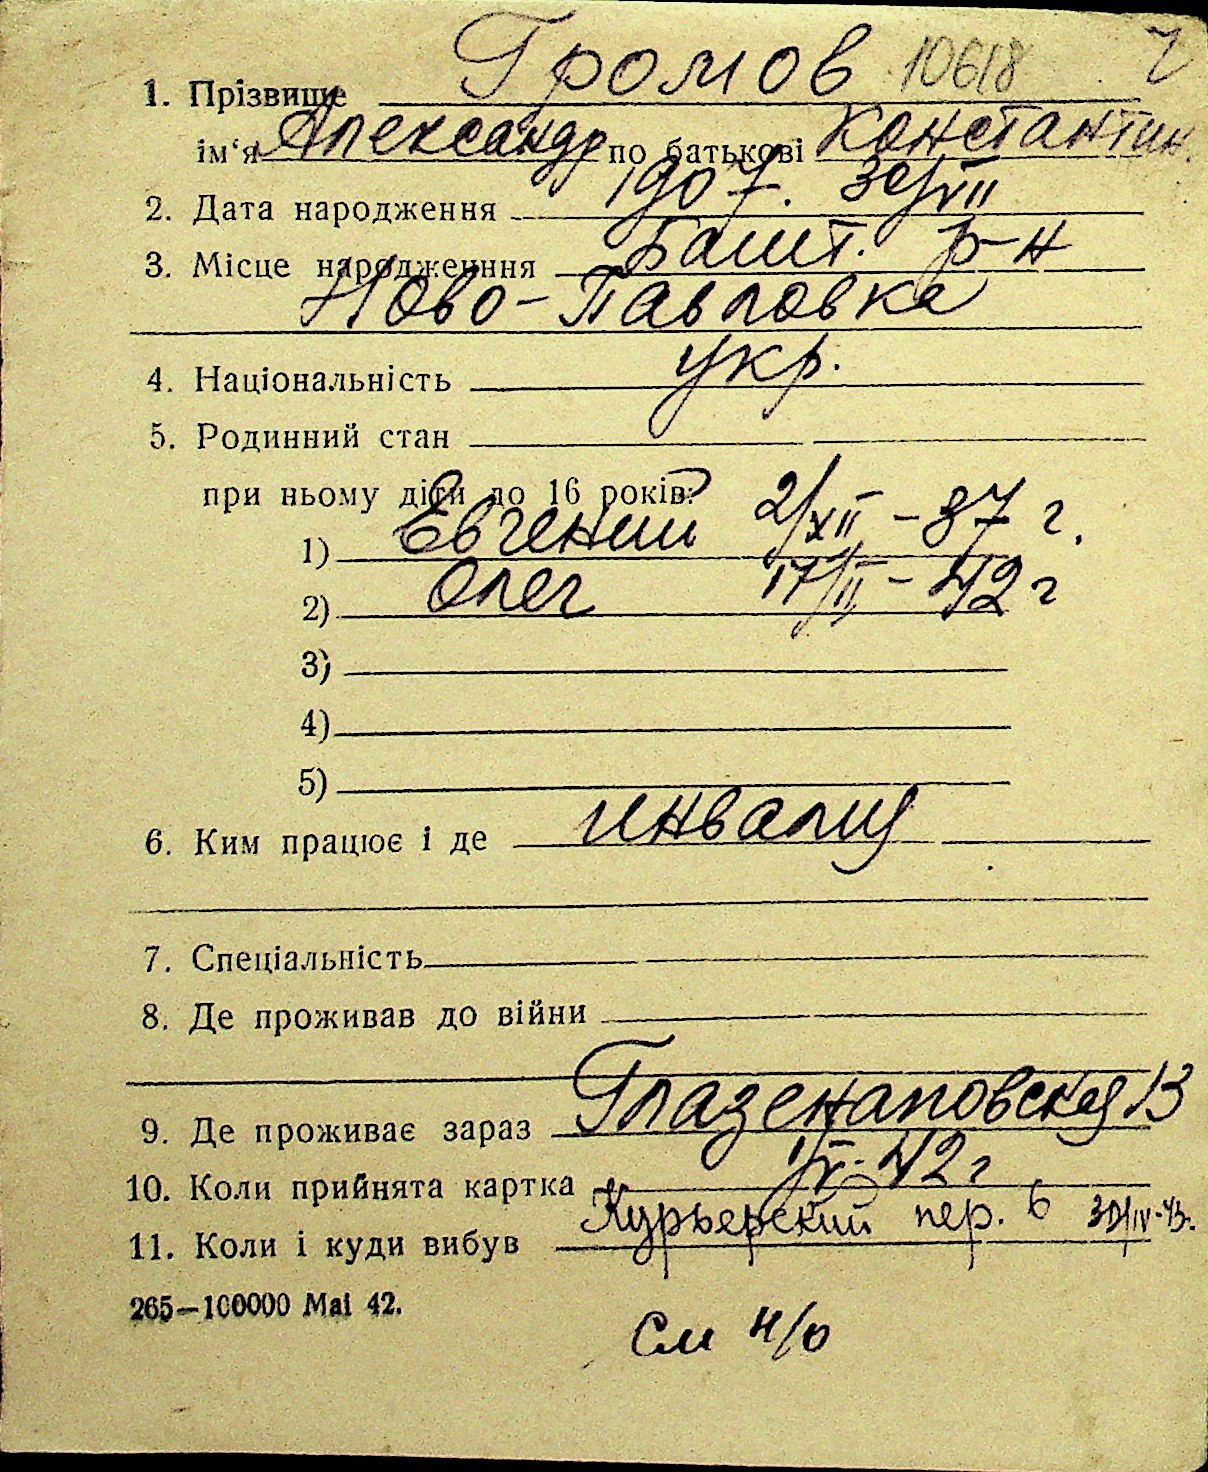 Громов 10618
1. Прізвище
ім'я Александр по батькові Константин.
2. Дата народження 1907. 30/VII
3. Місце народженння Башт. р-н
Ново-Павловка
4. Національність укр.
5. Родинний стан
при ньому діти до 16 років:
1) Евгений 2/XII - 37 г.
2) Олег 17/II - 42 г
3)
4)
5)
6. Ким працює і де инвалид
7. Спеціальність
8. Де проживав до війни
9. Де проживає зараз Глазенаповская 13
10. Коли прийнята картка 1/X-42 г
11. Коли і куди вибув Курьерский пер. 6 30/IV-43.
265—100000 Mai 42.
См н/о